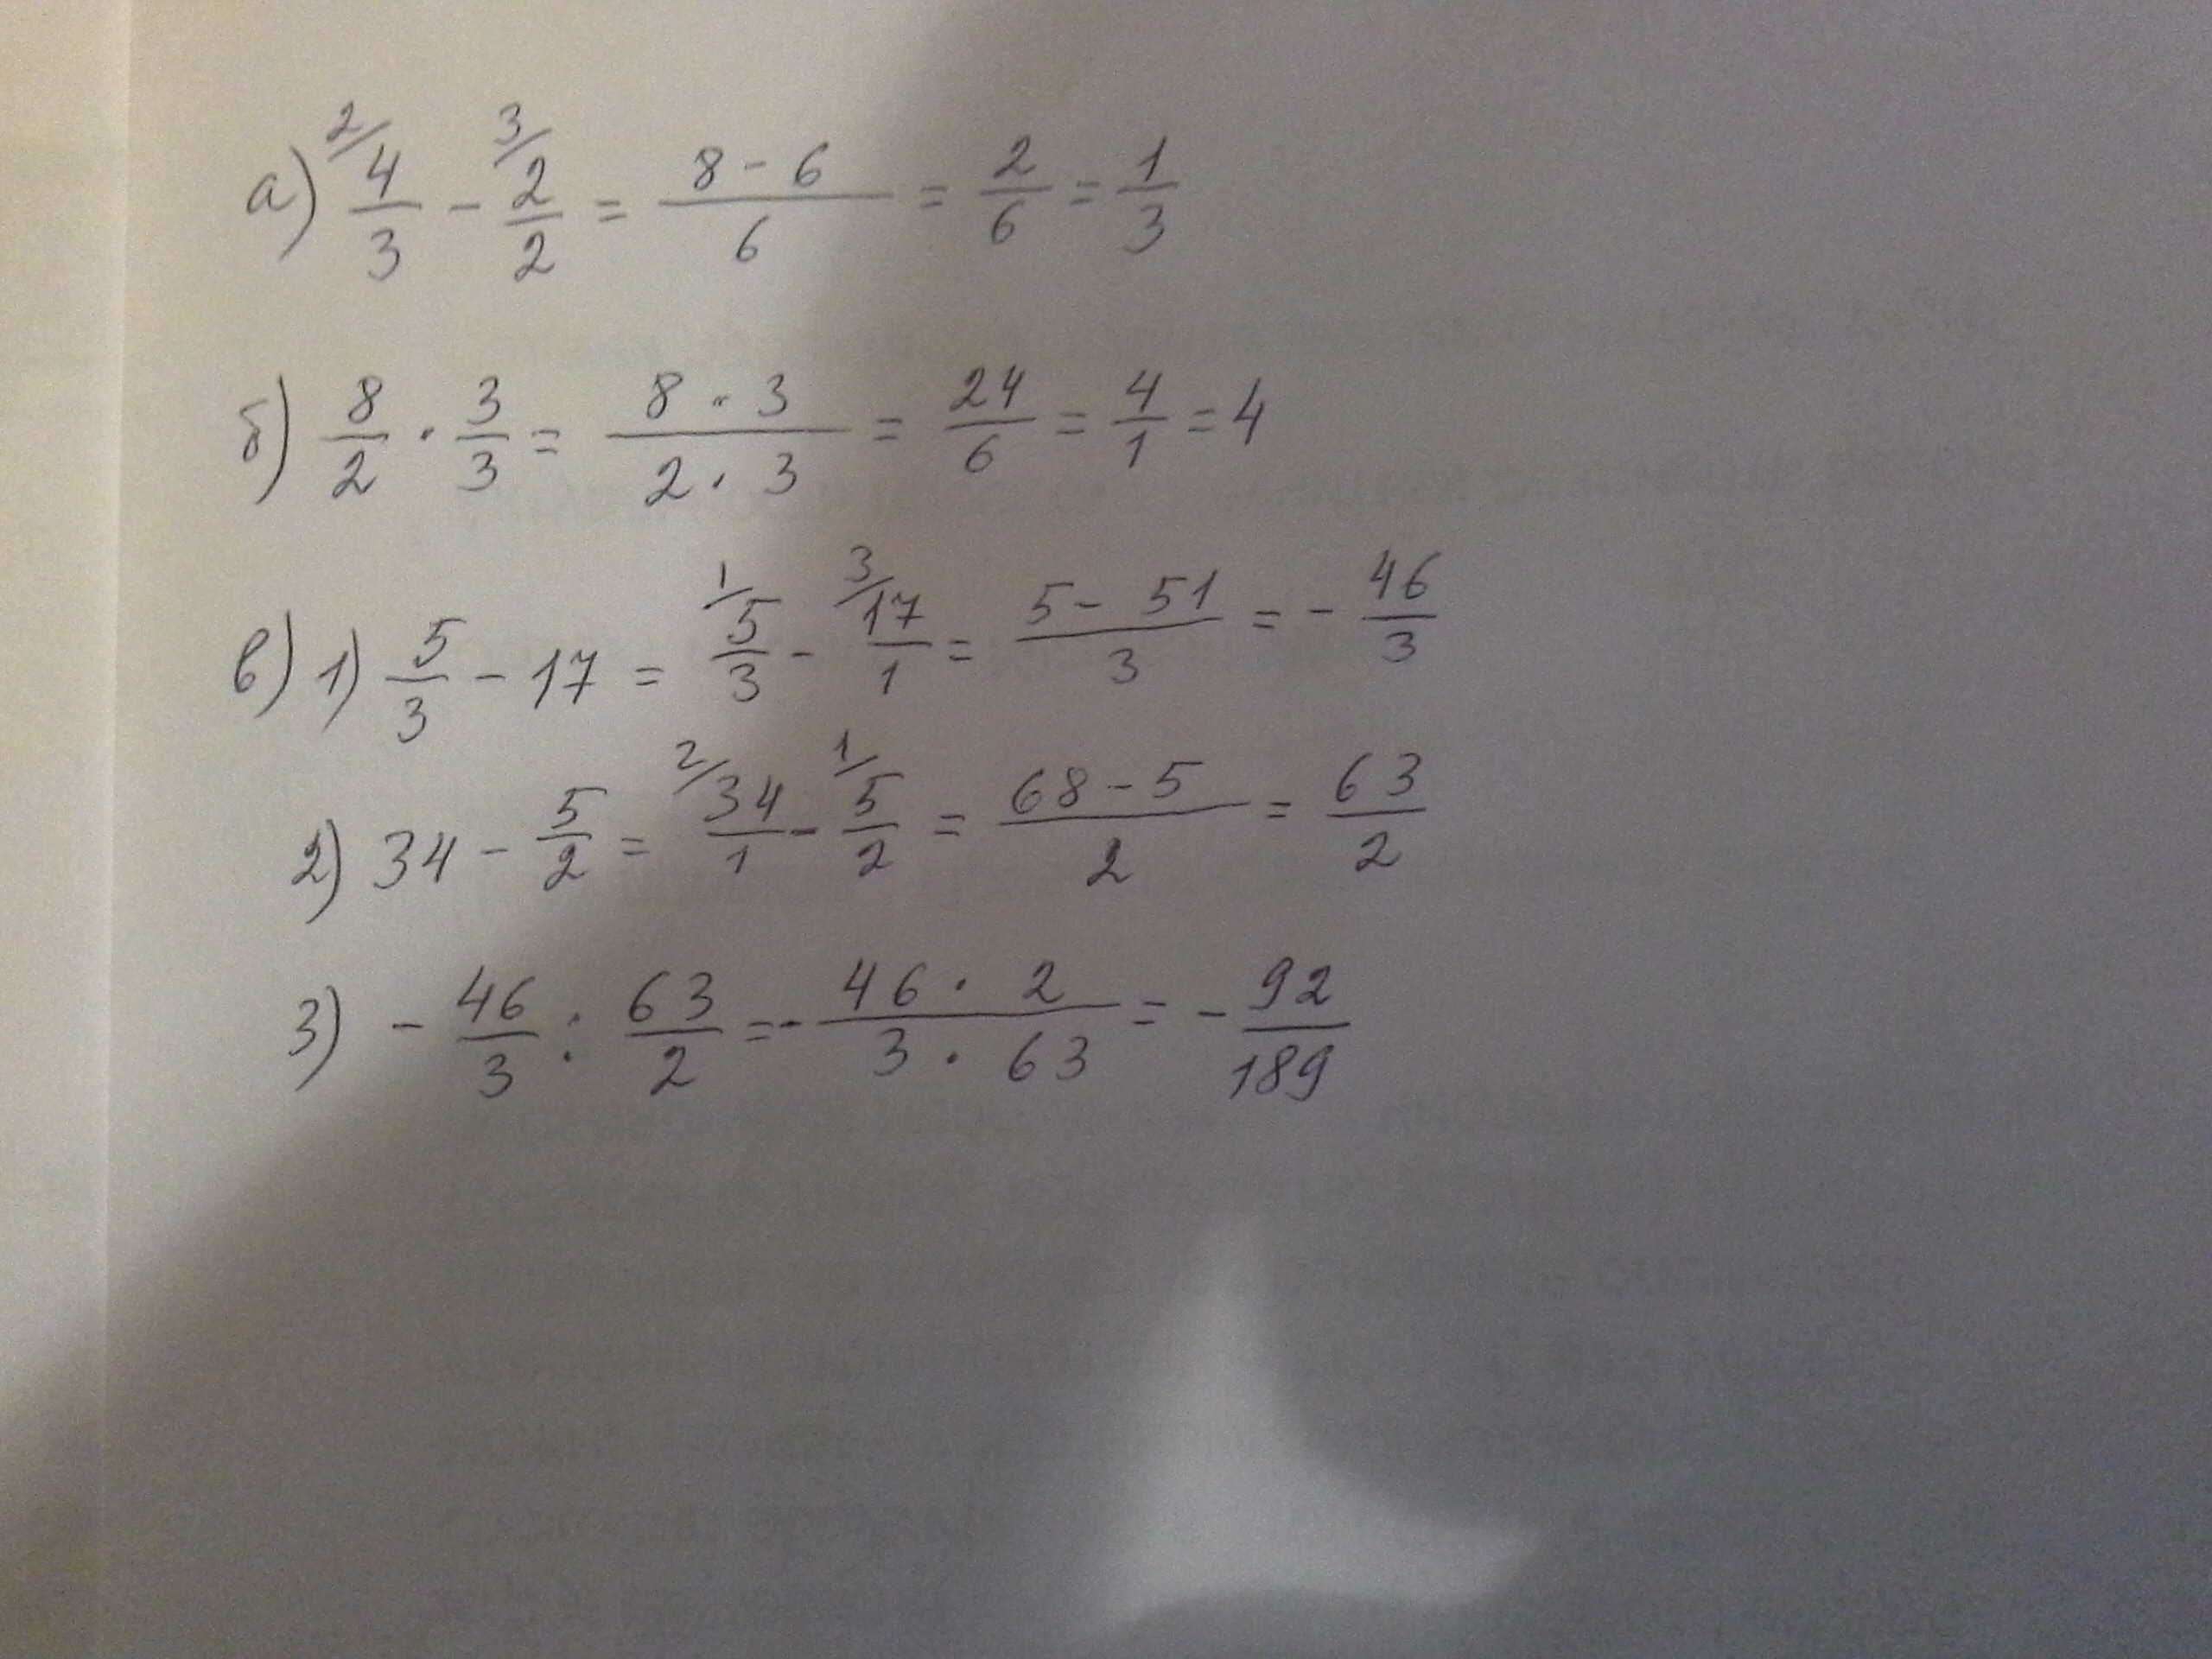 а) 2/ 4/3 - 3/ 2/2 = (8 - 6)/6 = 2/6 = 1/3
б) 8/2 · 3/3 = (8 · 3)/(2 · 3) = 24/6 = 4/1 = 4
в) 1) 5/3 - 17 = 1/ 5/3 - 3/ 17/1 = (5 - 51)/3 = - 46/3
2) 34 - 5/2 = 2/ 34/1 - 1/ 5/2 = (68 - 5)/2 = 63/2
3) - 46/3 : 63/2 = - (46 · 2)/(3 · 63) = - 92/189